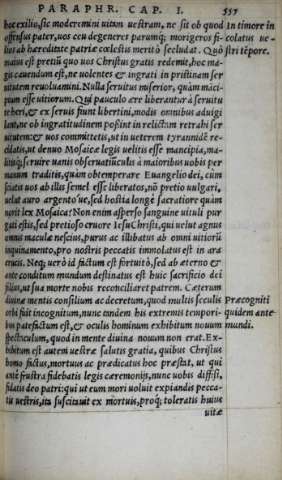 PARAPHR. CAP. I. 557
hoc exilio, sic moderemini uitam uestram, ne sit ob quod In timore in
offensus pater, uos ceu degeneres parumq́; morigeros fi- colatus ue-
lios ab hæreditate patriæ cœlestis meritò secludat. Quò stri tēpore.
maius est pretiũ quo uos Christus gratis redemit, hoc ma-
gis cauendum est, ne uolentes & ingrati in pristinam ser
uitutem reuoluamini. Nulla seruitus miserior, quàm mäci-
pium esse uitiorum. Qui pauculo ære liberantur à seruitu
te heri, & ex seruis fiunt libertini, modis omnibus aduigi
lant, ne ob ingratitudinem possint in relictam retrahi ser
uitutem: & uos committetis, ut in ueterem tyrannidē re-
cidatis, ut denuo Mosaicæ legis uelitis esse mancipia, ma-
litisq́; seruire uanis obseruatiũculis à maioribus uobis per
manum traditis, quàm obtemperare Euangelio dei, cùm
sciatis uos ab illis semel esse liberatos, nō pretio uulgari,
uelut auro argento'ue, sed hostia longè sacratiore quàm
norit lex Mosaica? Non enim aspersio sanguine uituli pur
gati estis, sed pretioso cruore Iesu Christi, qui uelut agnus
omnis maculæ nescius, purus ac illibatus ab omni uitiorũ
inquinamento, pro nostris peccatis immolatus est in ara
crucis. Neq́; uerò id factum est fortuitò, sed ab æterno &
ante conditum mundum destinatus est huic sacrificio dei
filius, ut sua morte nobis reconciliaret patrem. Cæterum
diuinæ mentis consilium ac decretum, quod multis seculis Præcogniti
orbi fuit incognitum, nunc tandem his extremis tempori- quidem ante
bus patefactum est, & oculis hominum exhibitum nouum mundi.
spectaculum, quod in mente diuina nouum non erat. Ex-
hibitum est autem uestræ salutis gratia, quibus Christus
homo factus, mortuus ac prædicatus hoc præstat, ut qui
antè frustra fidebatis legis cæremonijs, nunc uobis diffisi,
fidatis deo patri: qui ut eum mori uoluit expiandis pecca-
tis uestris, ita suscitauit ex mortuis, proq́; toleratis huius
uitæ